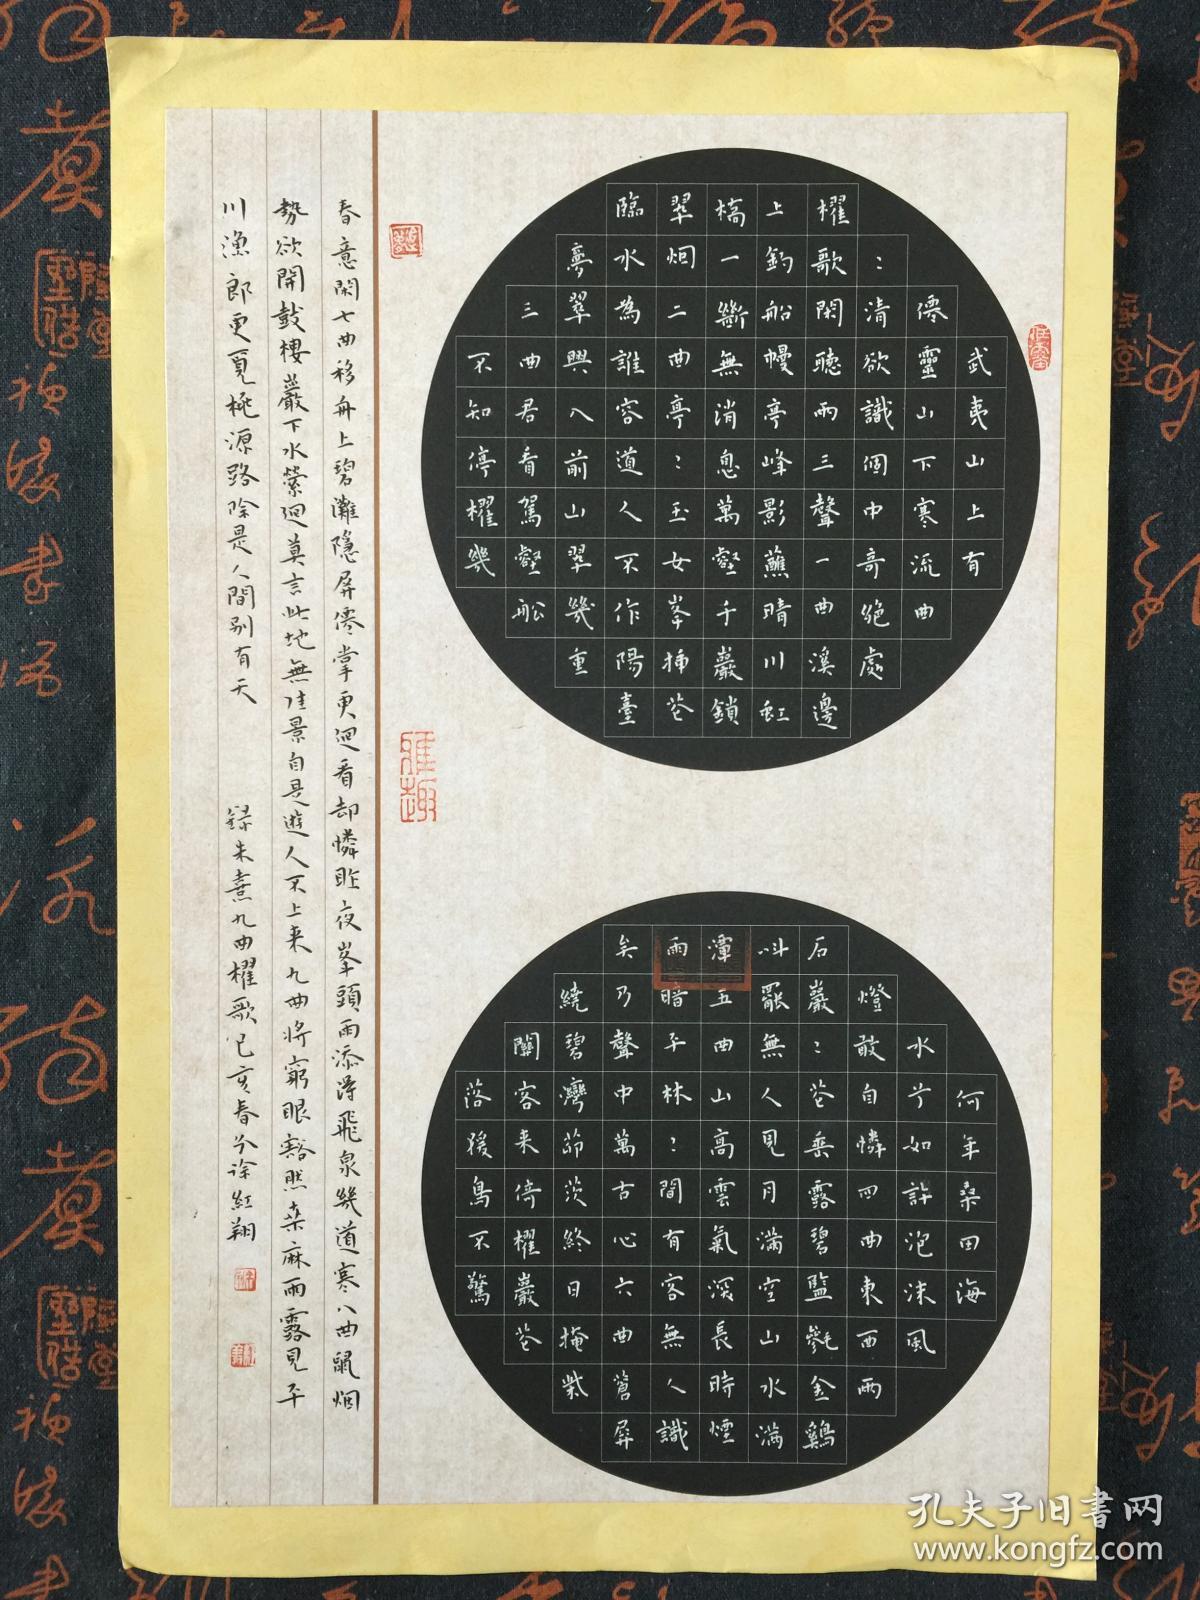 武夷山上有
僊靈山下寒流曲
：清欲識個中奇絕處
櫂歌閑聽兩三聲一曲溪邊
上釣船幔亭峰影蘸晴川虹
橋一斷無消息萬壑千巖鎖
翠烟二曲亭：玉女峯插花
臨水為誰容道人不作陽臺
夢翠興入前山翠幾重
三曲君看駕壑船
不知停櫂幾
何年桑田海
水兮如許泡沫風
燈敢自憐四曲東西兩
石巖：花垂露碧監毿金鷄
叫罷無人見月滿空山水滿
潭五曲山高雲氣深長時煙
雨暗平林：間有客無人識
矣乃聲中萬古心六曲蒼屏
繞碧灣茆茨終日掩柴
關客来倚櫂巖花
落猨鳥不驚
春意閑七曲移舟上碧灘隱屏僊掌更迴看却憐昨夜峯頭雨添得飛泉幾道寒八曲風烟
勢欲開鼓樓巖下水縈迴莫言此地無佳景自是遊人不上来九曲將窮眼豁然桑麻雨露見平
川漁郎更覓桃源路除是人間別有天
錄朱熹九曲櫂歌己亥春分涂紅翔
雅趣
孔夫子旧书网
www.kongfz.com